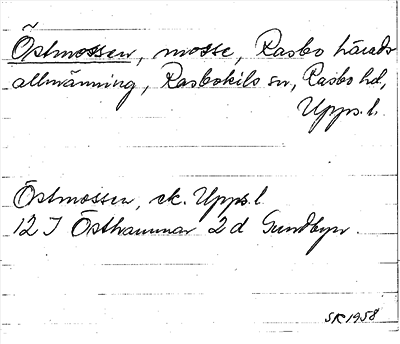 Östmossen, mosse, Rasbo härads
allmänning, Rasbokils sn, Rasbo hd,
Upps. l.
Östmossen, ek. Upps. l.
12 I Östhammar 2 d Gundbyn.
SK 1958